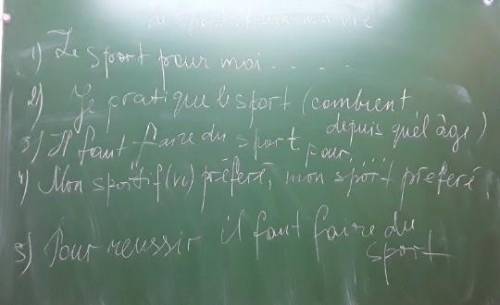 le sport dans ma vie
1) Le sport pour moi . . . . .
2) Je pratique le sport (combient
depuis quel âge)
3) Il faut faire du sport pour . . . . .
4) Mon sportif(ve) préféré, mon sport préféré,
5) Pour reussir il faut faire du
sport